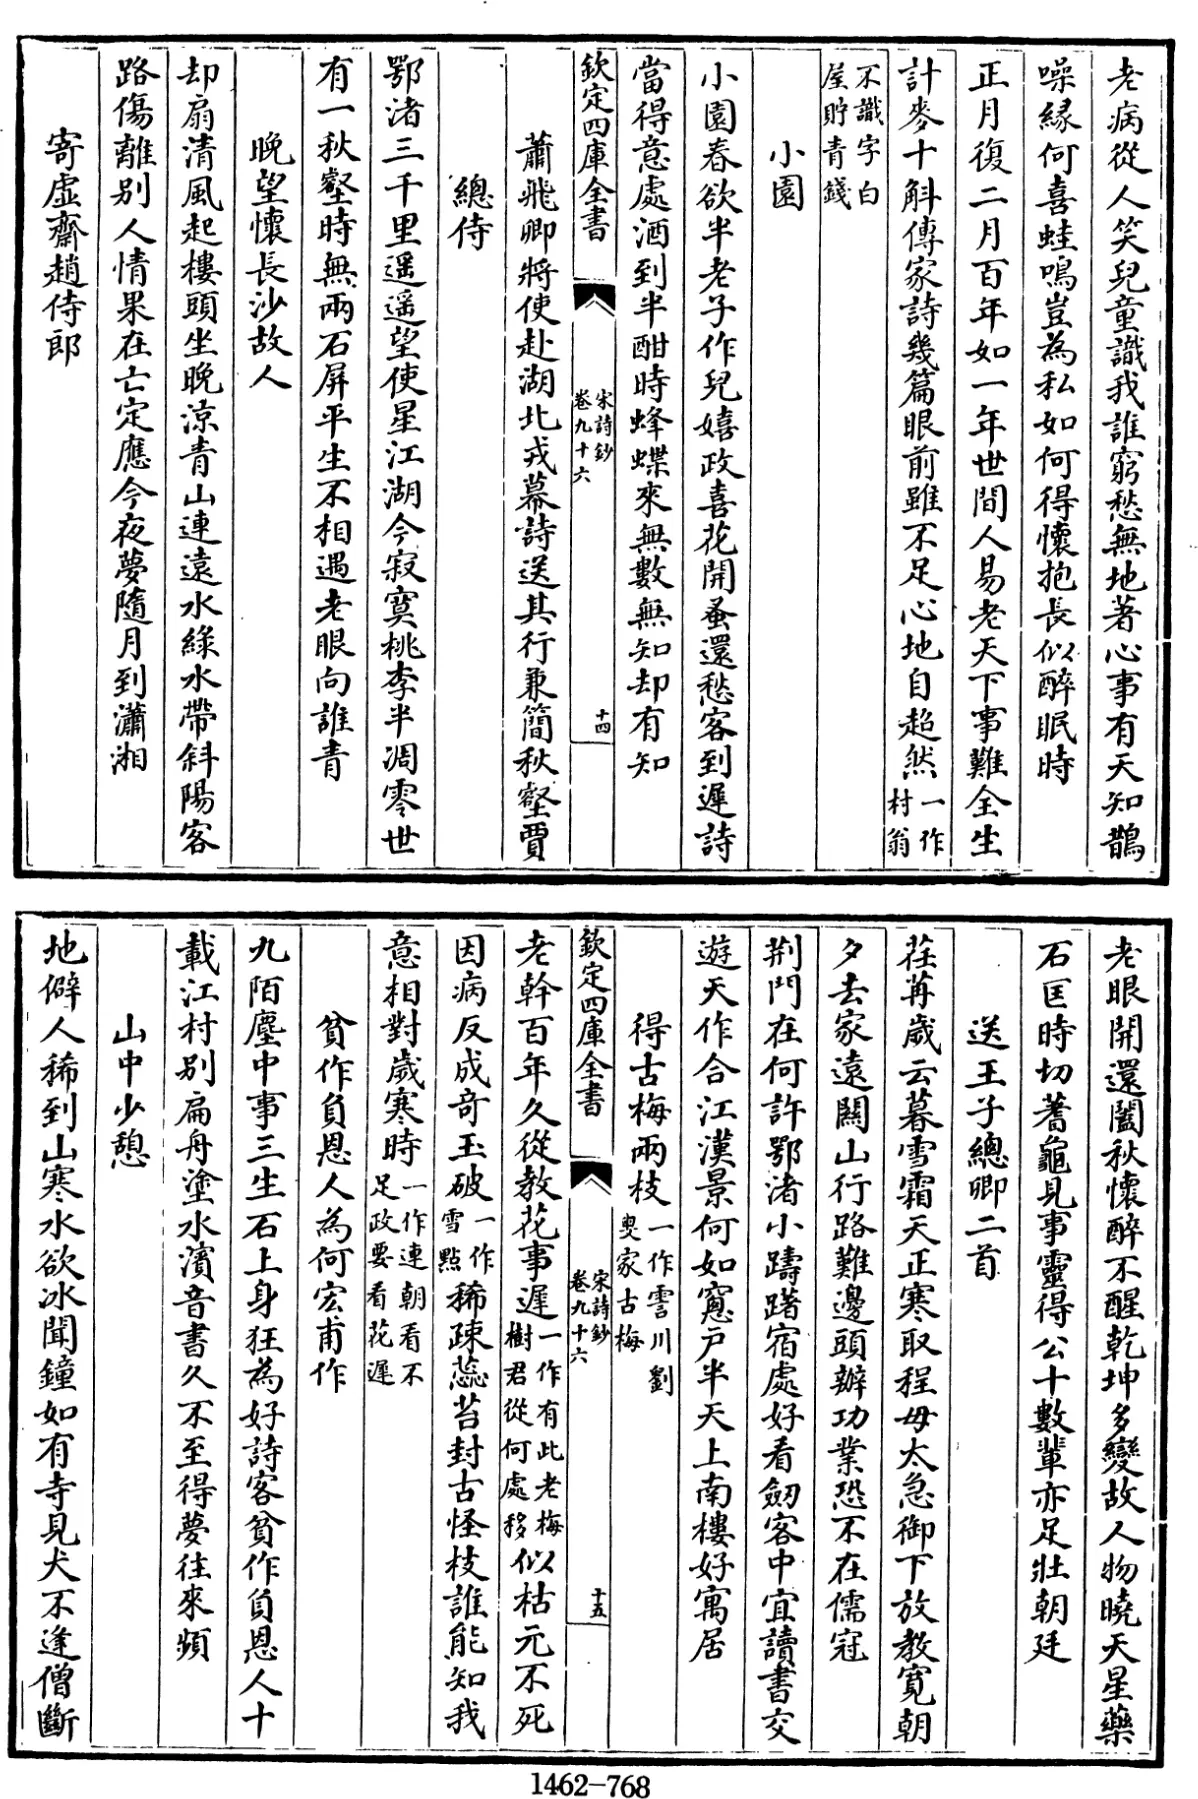 老病從人笑兒童識我誰窮愁無地著心事有天知鵲
噪緣何喜蛙鳴豈為私如何得懷抱長似醉眠時
正月復二月百年如一年世間人易老天下事難全生
計麥十斛傳家詩幾篇眼前雖不足心地自超然一作村翁
不識字白屋貯青錢
小園
小園春欲半老子作兒嬉政喜花開蚤還愁客到遲詩
當得意處酒到半酣時蜂蝶來無數無知却有知
欽定四庫全書
宋詩鈔
卷九十六
十四
蕭飛卿將使赴湖北戎幕詩送其行兼簡秋壑賈
總侍
鄂渚三千里遥遥望使星江湖今寂寞桃李半凋零世
有一秋壑時無兩石屏平生不相遇老眼向誰青
晚望懷長沙故人
却扇清風起樓頭坐晚凉青山連遠水綠水帶斜陽客
路傷離别人情果在亡定應今夜夢隨月到瀟湘
寄虛齋趙侍郎
老眼開還闔秋懷醉不醒乾坤多變故人物曉天星藥
石匡時切蓍龜見事靈得公十數輩亦足壯朝廷
送王子總卿二首
荏苒歲云暮雪霜天正寒取程毋太急御下放教寛朝
夕去家遠關山行路難邊頭辦功業恐不在儒冠
荆門在何許鄂渚小躊躇宿處好看劒客中宜讀書交
遊天作合江漢景何如窻戸半天上南樓好寓居
得古梅兩枝一作霅川劉奥家古梅
欽定四庫全書
宋詩鈔
卷九十六
十五
老幹百年久從教花事遲一作有此老梅樹君從何處移似枯元不死
因病反成奇玉破一作雪點稀疎蕊苔封古怪枝誰能知我
意相對歲寒時一作連朝看不足政要看花遲
貧作負恩人為何宏甫作
九陌塵中事三生石上身狂為好詩客貧作負恩人十
載江村别扁舟塗水濱音書久不至得夢往來頻
山中少憩
地僻人稀到山寒水欲冰聞鐘如有寺見犬不逢僧斷
1462-768